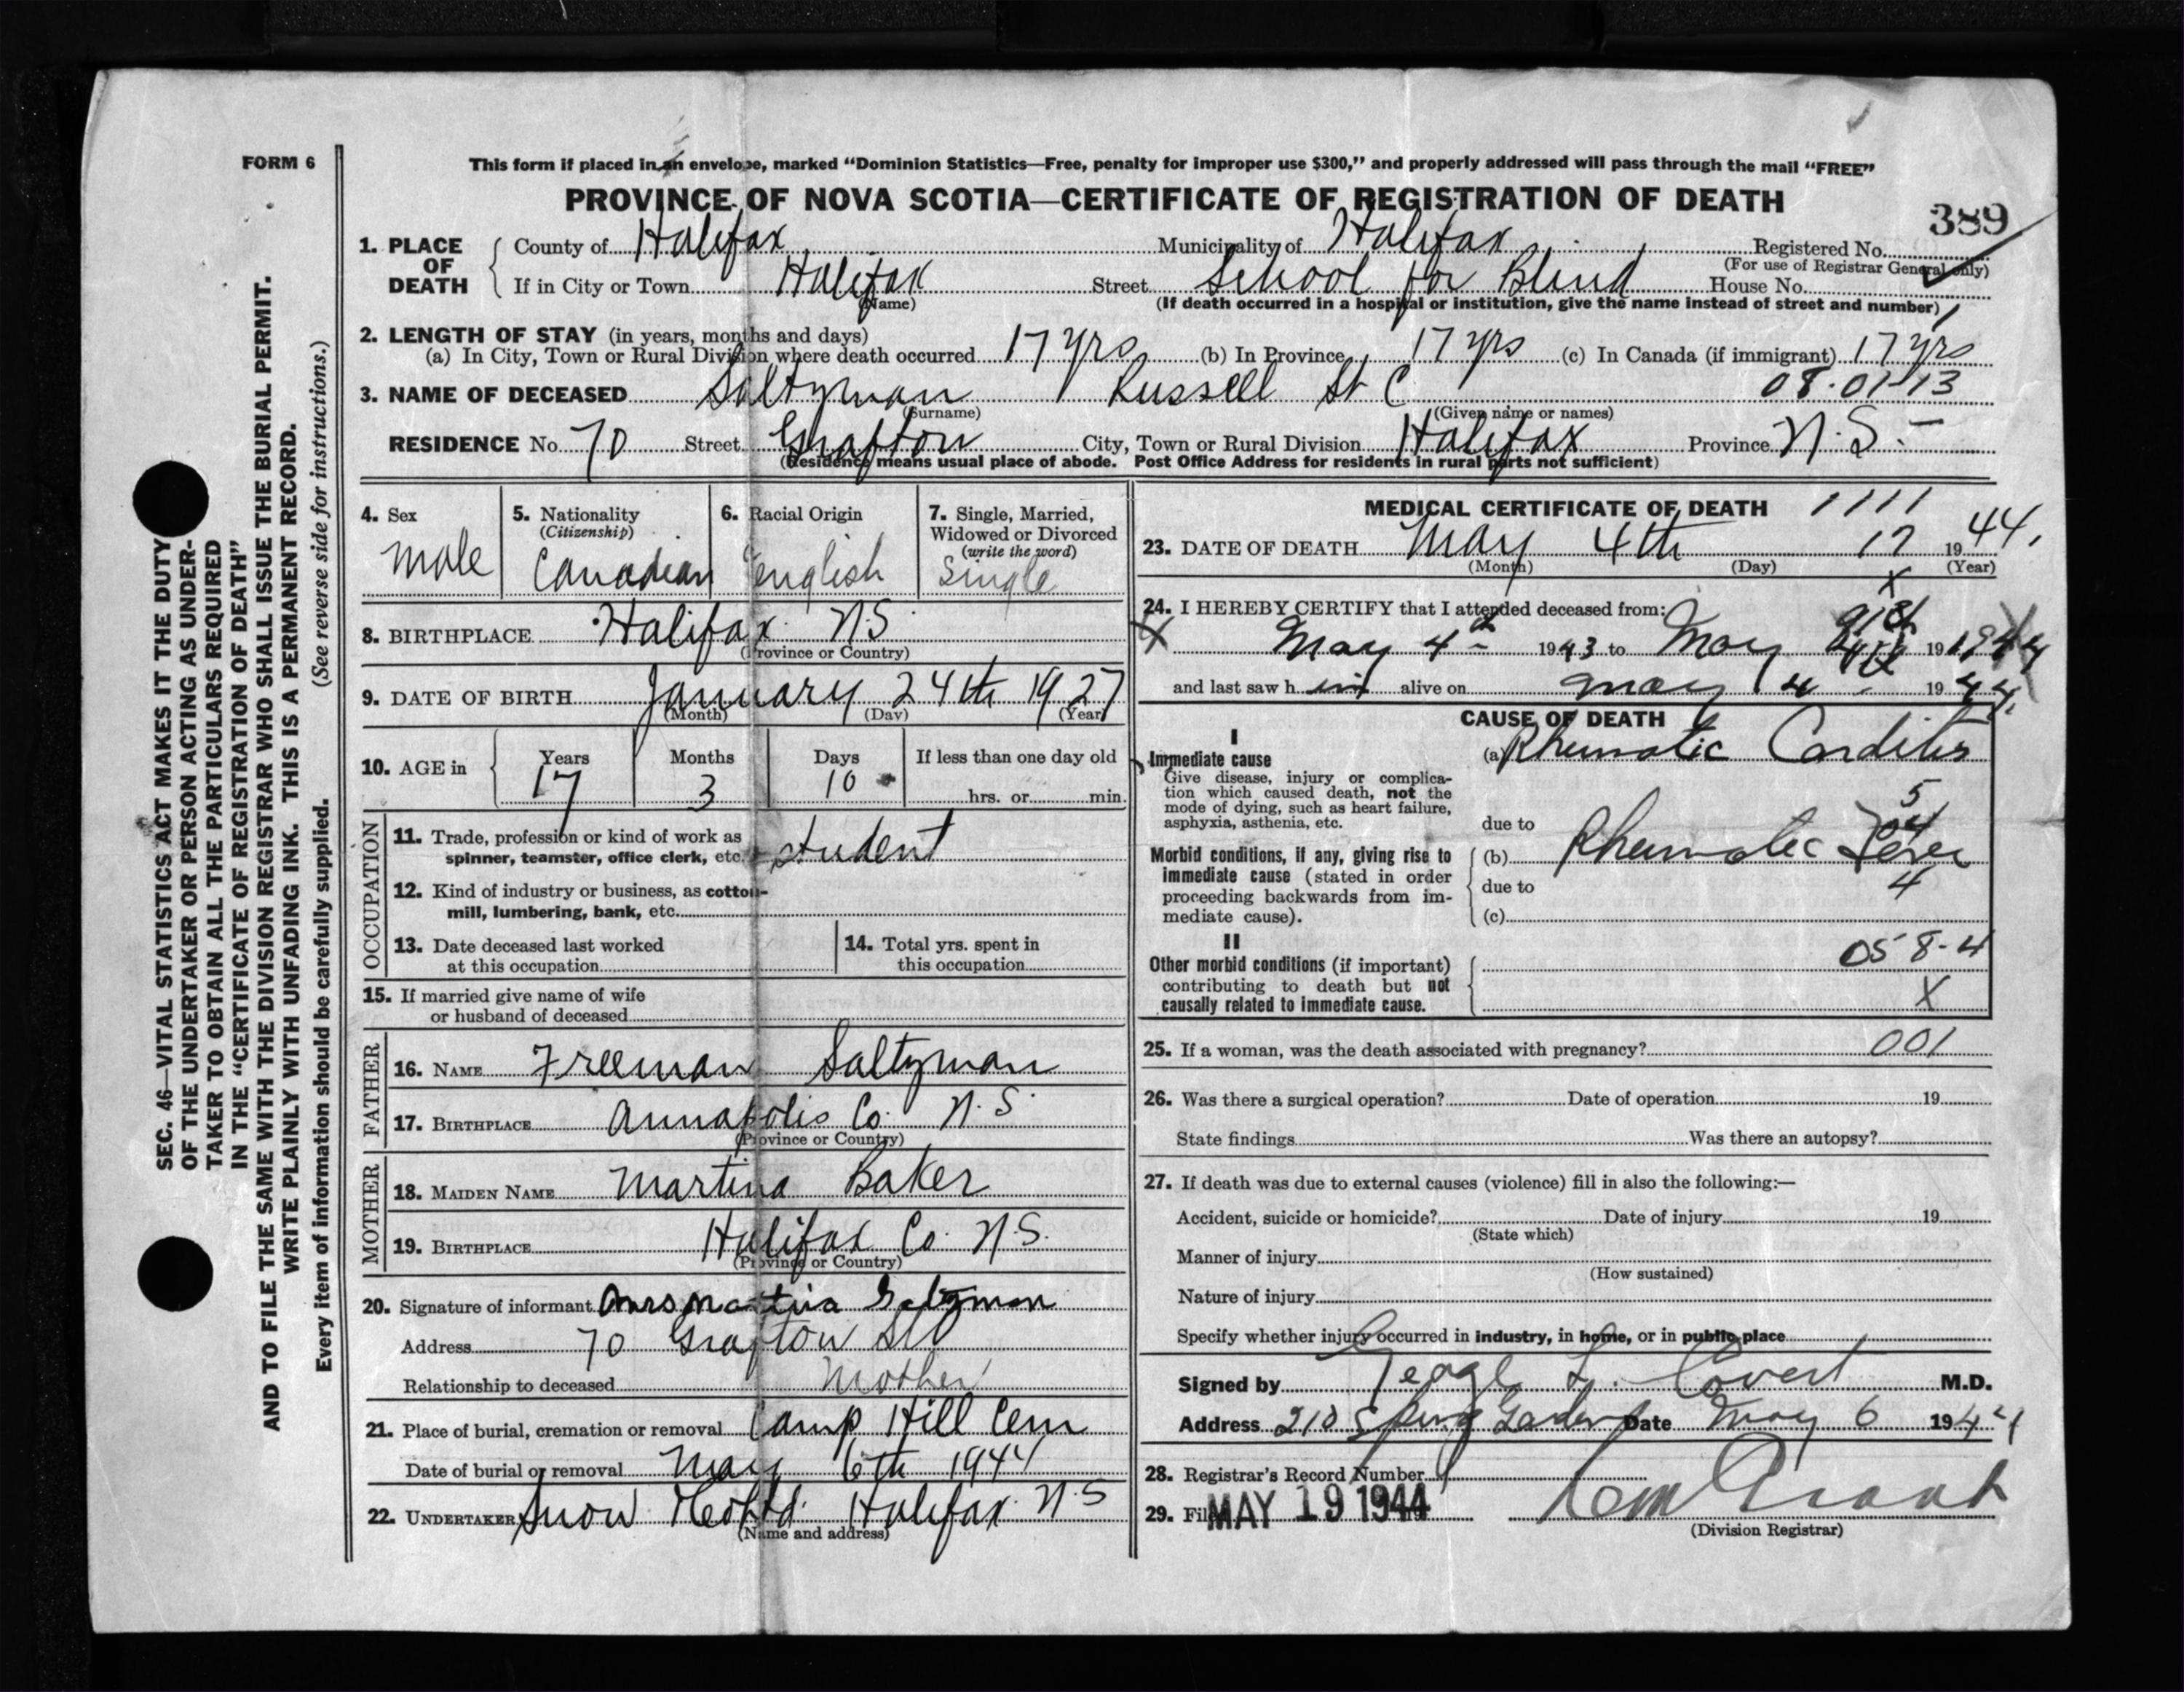 FORM 6
This form if placed in an envelope, marked "Dominion Statistics—Free, penalty for improper use $300," and properly addressed will pass through the mail "FREE"
PROVINCE OF NOVA SCOTIA—CERTIFICATE OF REGISTRATION OF DEATH
389
1. PLACE OF DEATH County of Halifax Municipality of Halifax Registered No.
(For use of Registrar General only)
If in City or Town Halifax Street School for Blind House No.
(Name) (If death occurred in a hospital or institution, give the name instead of street and number)
2. LENGTH OF STAY (in years, months and days)
(a) In City, Town or Rural Division where death occurred 17 yrs (b) In Province 17 yrs (c) In Canada (if immigrant) 17 yrs
08-01-13
3. NAME OF DECEASED Saltzman Russell St C
(Surname) (Given name or names)
RESIDENCE No. 70 Street Grafton City, Town or Rural Division Halifax Province N.S.
(Residence means usual place of abode. Post Office Address for residents in rural parts not sufficient)
4. Sex
male
5. Nationality
(Citizenship)
Canadian
6. Racial Origin
English
7. Single, Married,
Widowed or Divorced
(write the word)
Single
8. BIRTHPLACE Halifax N.S.
(Province or Country)
9. DATE OF BIRTH January 24th 1927
(Month) (Day) (Year)
10. AGE in Years Months Days If less than one day old
17 3 10 hrs. or min.
OCCUPATION
11. Trade, profession or kind of work as
spinner, teamster, office clerk, etc. Student
12. Kind of industry or business, as cotton-
mill, lumbering, bank, etc.
13. Date deceased last worked
at this occupation
14. Total yrs. spent in
this occupation
15. If married give name of wife
or husband of deceased
FATHER
16. NAME Freeman Saltzman
17. BIRTHPLACE Annapolis Co. N.S.
(Province or Country)
MOTHER
18. MAIDEN NAME Martina Baker
19. BIRTHPLACE Halifax Co. N.S.
(Province or Country)
20. Signature of informant Mrs Martina Saltzman
Address 70 Grafton St
Relationship to deceased Mother
21. Place of burial, cremation or removal Camp Hill Cem
Date of burial or removal May 6th 1944
22. UNDERTAKER Snow Halifax N.S
(Name and address)
MEDICAL CERTIFICATE OF DEATH 1111
23. DATE OF DEATH May 4th 17 1944.
(Month) (Day) (Year)
24. I HEREBY CERTIFY that I attended deceased from:
May 4 1943 to May 19
and last saw him alive on May 4 1944
CAUSE OF DEATH
I
Immediate cause
Give disease, injury or complica-
tion which caused death, not the
mode of dying, such as heart failure,
asphyxia, asthenia, etc.
(a) Rhumatic Carditis
due to
Morbid conditions, if any, giving rise to
immediate cause (stated in order
proceeding backwards from im-
mediate cause).
(b) Rheumatic Fever
due to
(c)
II
Other morbid conditions (if important)
contributing to death but not
causally related to immediate cause.
058-4
X
25. If a woman, was the death associated with pregnancy? 001
26. Was there a surgical operation? Date of operation 19
State findings Was there an autopsy?
27. If death was due to external causes (violence) fill in also the following:—
Accident, suicide or homicide? Date of injury 19
(State which)
Manner of injury
(How sustained)
Nature of injury
Specify whether injury occurred in industry, in home, or in public place
Signed by George L. Covert M.D.
Address 210 Spring Garden Date May 6 1944
28. Registrar's Record Number
29. Filed MAY 19 1944
(Division Registrar)
SEC. 46—VITAL STATISTICS ACT MAKES IT THE DUTY
OF THE UNDERTAKER OR PERSON ACTING AS UNDER-
TAKER TO OBTAIN ALL THE PARTICULARS REQUIRED
IN THE "CERTIFICATE OF REGISTRATION OF DEATH"
AND TO FILE THE SAME WITH THE DIVISION REGISTRAR WHO SHALL ISSUE THE BURIAL PERMIT.
WRITE PLAINLY WITH UNFADING INK. THIS IS A PERMANENT RECORD.
Every item of information should be carefully supplied. (See reverse side for instructions.)